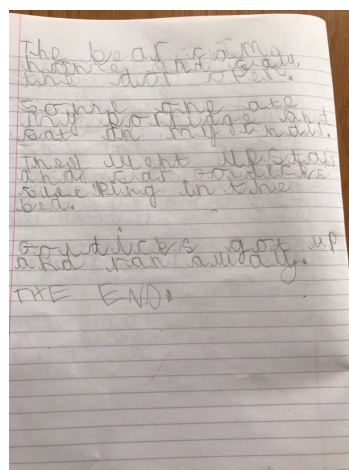 The bear s came
home and saw
the dor open.
Some one ate
my porridge and
sat on my
They went upstair
and saw
sleeping in the
bed.
got up
and ran away.
THE END.